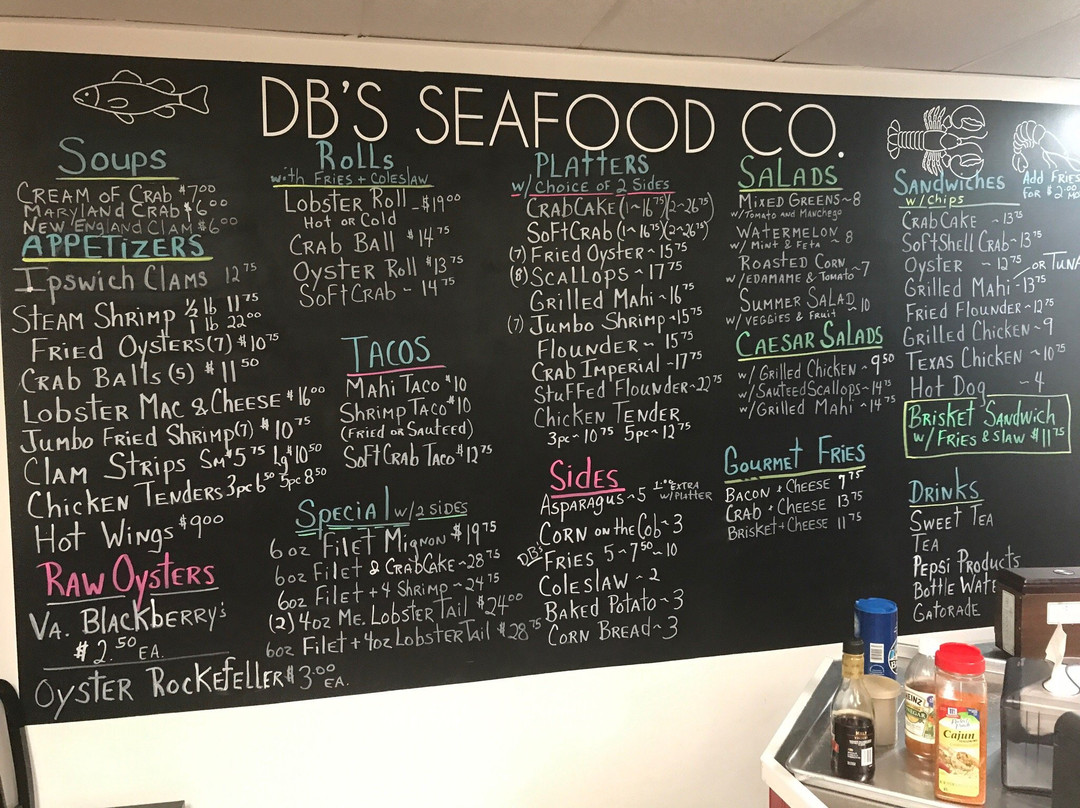 DB'S SEAFOOD CO.
Soups
CREAM OF CRAB $7.00
MARYLAND CRAB $6.00
NEW ENGLAND CLAM $6.00
APPETIZERS
IPSWICH CLAMS 12.75
STEAM SHRIMP ½ lb 11.75
1 lb 22.00
FRIED OYSTERS (7) $10.75
CRAB BALLS (5) $11.50
LOBSTER MAC & CHEESE $16.00
JUMBO FRIED SHRIMP (7) $10.75
CLAM STRIPS SM $5.75 Lg $10.50
CHICKEN TENDERS 3pc 6.50 5pc 8.50
HOT WINGS $9.00
RAW OYSTERS
VA. BLACKBERRY'S
$2.50 EA.
OYSTER ROCKEFELLER $3.00 EA.
ROLLS
with FRIES + COLESLAW
LOBSTER ROLL - $19.00
HOT OR COLD
CRAB BALL $14.75
OYSTER ROLL $13.75
SOFT CRAB - 14.75
TACOS
MAHI TACO $10
SHRIMP TACO $10
(FRIED OR SAUTEED)
SOFT CRAB TACO $12.75
SPECIAL w/ 2 SIDES
6 oz FILET MIGNON $19.75
6oz FILET & CRABCAKE ~ 28.75
6oz FILET + 4 SHRIMP ~ 24.75
(2) 4oz ME. LOBSTER TAIL $24.00
6oz FILET + 4oz LOBSTER TAIL $28.75
PLATTERS
w/ CHOICE OF 2 SIDES
CRABCAKE (1~16.75)(2~26.75)
SOFTCRAB (1~16.75)(2~26.75)
(7) FRIED OYSTER ~ 15.75
(8) SCALLOPS ~ 17.75
GRILLED MAHI ~ 16.75
(7) JUMBO SHRIMP ~ 15.75
FLOUNDER ~ 15.75
CRAB IMPERIAL ~ 17.75
STUFFED FLOUNDER ~ 22.75
CHICKEN TENDER
3pc ~ 10.75 5pc ~ 12.75
SIDES
ASPARAGUS ~ 5 1.00 EXTRA w/ PLATTER
CORN ON THE COB ~ 3
DB'S FRIES 5 ~ 7.50 ~ 10
COLESLAW ~ 2
BAKED POTATO ~ 3
CORN BREAD ~ 3
SALADS
MIXED GREENS ~ 8
w/ TOMATO AND MANCHEGO
WATERMELON
w/ MINT & FETA ~ 8
ROASTED CORN
w/ EDAMAME & TOMATO ~ 7
SUMMER SALAD 10
w/ VEGGIES & FRUIT
CAESAR SALADS
w/ GRILLED CHICKEN ~ 9.50
w/ SAUTEED SCALLOPS ~ 14.75
w/ GRILLED MAHI ~ 14.75
GOURMET FRIES
BACON + CHEESE 7.75
CRAB + CHEESE 13.75
BRISKET + CHEESE 11.75
SANDWICHES
w/ CHIPS
ADD FRIES
FOR $2
CRABCAKE ~ 13.75
SOFTSHELL CRAB ~ 13.75
OYSTER ~ 12.75
GRILLED MAHI ~ 13.75 OR TUNA
FRIED FLOUNDER ~ 12.75
GRILLED CHICKEN ~ 9
TEXAS CHICKEN ~ 10.75
HOT DOG ~ 4
BRISKET SANDWICH
w/ FRIES & SLAW $11.75
DRINKS
SWEET TEA
TEA
PEPSI PRODUCTS
BOTTLE WATE
GATORADE
HEINZ
Cajun